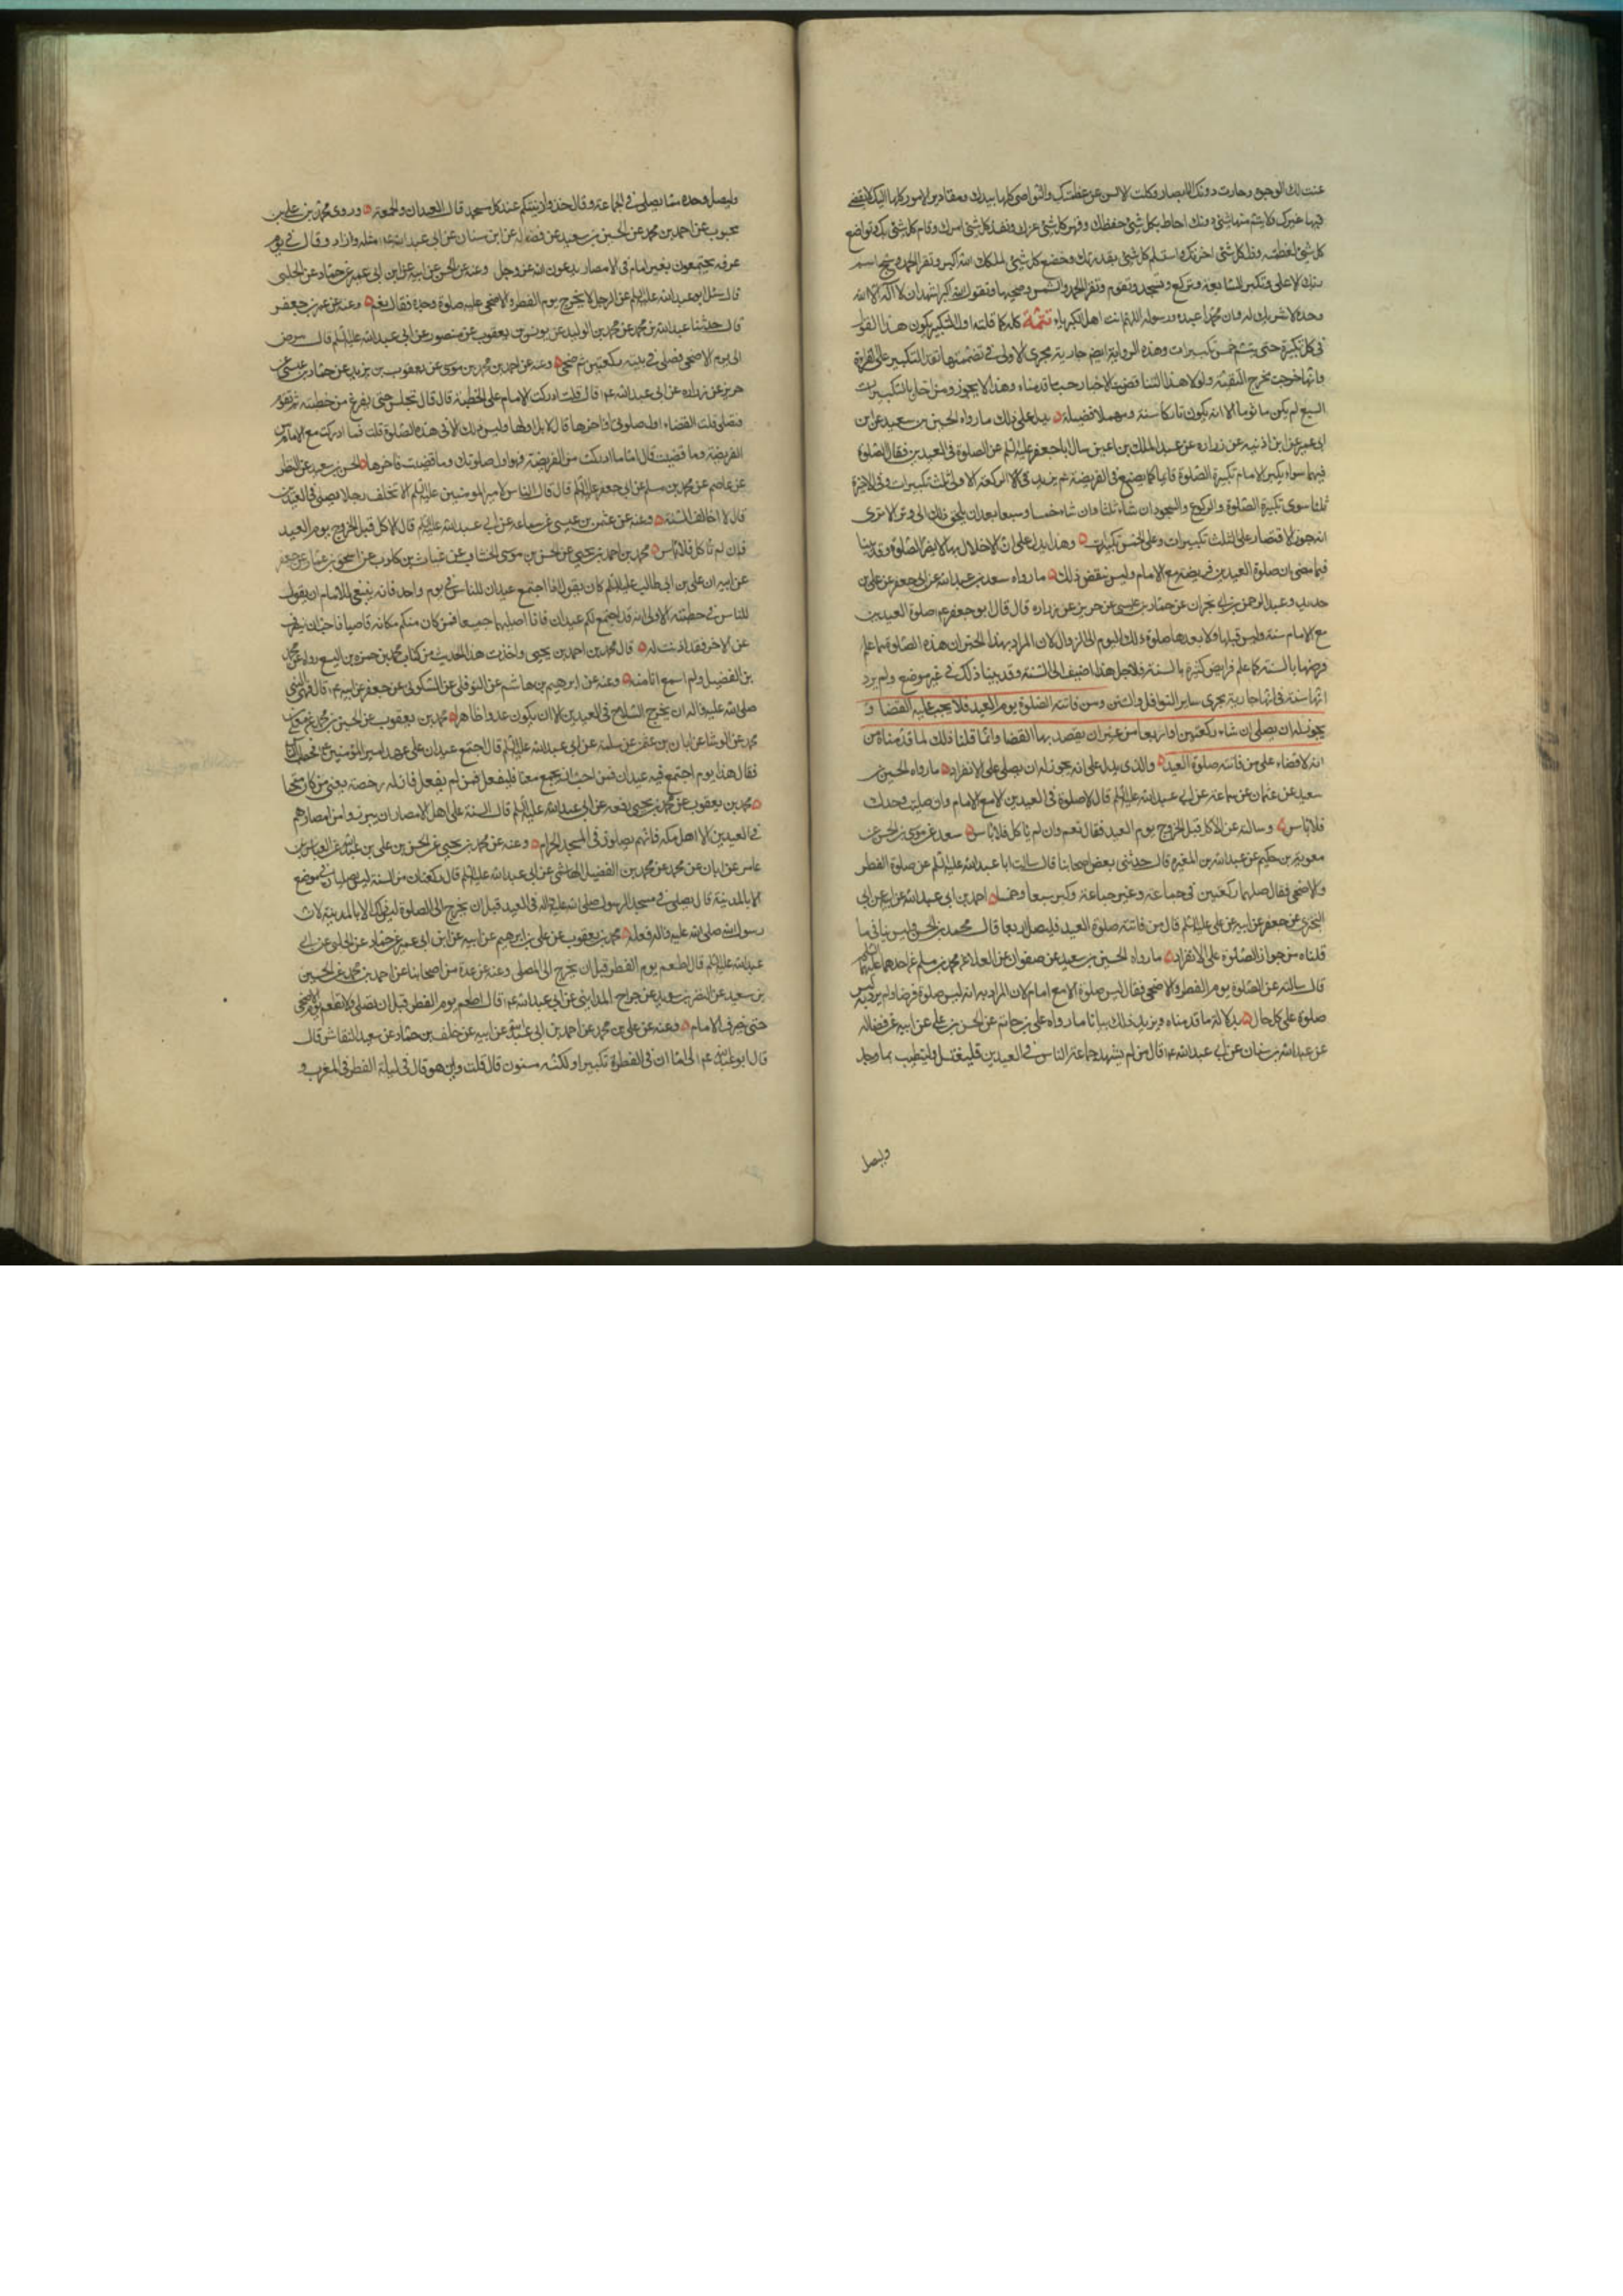 عنت لك الوجوه وحارت دونك الابصار وكلت الالسن عن عظمتك والنواصي كلها بيدك ومقادير الامور كلها اليك لا يقضي
فيها غيرك ولا يتم منها شئ دونك احاط بكل شئ حفظك وقهر كل شئ عزك ونفذ كل شئ امرك وقام كل شئ بك وتواضع
كل شئ لعظمتك وذل كل شئ لعزتك واستسلم كل شئ لقدرتك وخضع كل شئ لملكك الله اكبر وتقرأ الحمد وسبح اسم
ربك الاعلى وتكبر السابعة وتركع وتسجد وتقوم وتقرأ الحمد والشمس وضحيها وتقول الله اكبر اشهد ان لا اله الا الله
وحده لا شريك له وان محمدا عبده ورسوله اللهم انت اهل الكبرياء تتمة كله كما قلته اول التكبير يكون هذا القول
في كل تكبيرة حتى يتم خمس تكبيرات وهذه الرواية ايضا جارية مجرى الاولى في تضمنها تقديم التكبير على القراءة
وانها خرجت مخرج التقية ولولا هذا لتناقضت الاخبار حسب ما قدمناه وهذا لا يجوز ومن اخل بالتكبيرات
السبع لم يكن مأثوما الا انه يكون تاركا سنة ومهملا فضيلة يدل على ذلك ما رواه الحسين بن سعيد عن ابن
ابي عمير عن ابن اذينه عن زراره عن عبد الملك بن اعين سال ابا جعفر عليه السلم عن الصلوة في العيدين فقال الصلوة
فيهما سواء يكبر الامام تكبيرة الصلوة قائما كما يصنع في الفريضة ثم يزيد في الركعة الاولى ثلث تكبيرات وفي الاخرة
ثلثا سوى تكبيرة الصلوة والركوع والسجود ان شاء ثلثا وان شاء خمسا وسبعا بعد ان يلحق ذلك الى وتر الا ترى
انه جوز الاقتصار على الثلث تكبيرات وعلى الخمس تكبيرات وهذا يدل على ان الاخلال بها لا يضر الصلوة وقد بينا
فيما مضى ان صلوة العيدين فريضة مع الامام وليس ينقض ذلك ما رواه سعد بن عبد الله عن ابي جعفر عن علي بن
حديد وعبد الرحمن بن ابي نجران عن حماد بن عيسى عن حريز عن زراره قال قال ابو جعفر عم صلوة العيدين
مع الامام سنة وليس قبلها ولا بعدها صلوة ذلك اليوم الى الزوال لان المراد بهذا الخبر ان هذه الصلوة مما علم
فرضها بالسنة كما علم فرايض كثيرة بالسنة فلاجل هذا اضيف الى السنة وقد بينا ذلك في غير موضع ولم يرد
انها سنة في انها جارية مجرى ساير النوافل والسنن ومن فاتته الصلوة يوم العيد فلا يجب عليه القضا و
يجوز له ان يصلي ان شاء ركعتين او اربعا من غير ان يقصد بها القضا وانما قلنا ذلك لما قدمناه من
انه لا قضاء على من فاتته صلوة العيد والذي يدل على انه يجوز له ان يصلي على الانفراد ما رواه الحسين بن
سعيد عن عثمان عن سماعة عن ابي عبد الله عليه السلم قال لا صلوة في العيدين الا مع الامام وان صليت وحدك
فلا باس وسالته عن الاكل قبل الخروج يوم العيد فقال نعم وان لم تاكل فلا باس سعد عن موسى بن الحسن عن
معوية بن حكيم عن عبد الله بن المغيره قال حدثني بعض اصحابنا قال سالت ابا عبد الله عليه السلم عن صلوة الفطر
والاضحى فقال صلهما ركعتين في جماعة وغير جماعة وكبر سبعا وخمسا احمد بن ابي عبد الله عن ابيه عن ابي
البختري عن جعفر عن ابيه عن علي عليه السلم قال من فاتته صلوة العيد فليصل اربعا قال محمد بن الحسن وليس ينافي ما
قلناه من جواز الصلوة على الانفراد ما رواه الحسين بن سعيد عن صفوان عن العلاء عن محمد بن مسلم عن احدهما عليهما السلم
قال سالته عن الصلوة يوم الفطر والاضحى فقال ليس صلوة الا مع امام لان المراد به انه ليس صلوة فرضا ولم يرد به ليس
صلوة على كل حال بدلالة ما قدمناه ويزيد ذلك بيانا ما رواه علي بن حاتم عن الحسن بن علي عن ابيه عن فضاله
عن عبد الله بن سنان عن ابي عبد الله عم قال من لم يشهد جماعة الناس في العيدين فليغتسل وليتطيب بما وجد
وليصل
وليصل وحده كما يصلي في الجماعة وقال خذوا زينتكم عند كل مسجد قال العيدان والجمعة وروى محمد بن علي بن
محبوب عن احمد بن محمد عن الحسين بن سعيد عن فضاله عن ابن سنان عن ابي عبد الله عم مثله وزاد وقال في يوم
عرفه يجتمعون بغير امام في الامصار يدعون الله عز وجل وعنه عن الحسن عن ابيه عن ابن ابي عمير عن حماد عن الحلبي
قال سئل ابو عبد الله عليه السلم عن الرجل لا يخرج يوم الفطر والاضحى عليه صلوة وحده فقال نعم وعنه عن محمد بن جعفر
قال حدثنا عبد الله بن محمد عن محمد بن الوليد عن يونس بن يعقوب عن منصور عن ابي عبد الله عليه السلم قال مرض
ابي يوم الاضحى فصلى في بيته ركعتين ثم ضحى وعنه عن احمد بن محمد بن موسى عن يعقوب بن يزيد عن حماد بن عيسى عن
حريز عن زراره عن ابي عبد الله عم قال قلت ادركت الامام على الخطبة قال قال تجلس حتى يفرغ من خطبته ثم تقوم
فتصلي قلت القضاء اول صلوتي او اخرها قال لا بل اولها وليس ذلك الا في هذه الصلوة قلت فما ادركت مع الامام من
الفريضة وما قضيت قال اما ما ادركت من الفريضة فهو اول صلوتك وما قضيت فاخرها الحسين بن سعيد عن النضر
عن عاصم عن محمد بن مسلم عن ابي جعفر عليه السلم قال قال الناس لامير المومنين عليه السلم الا تخلف رجلا يصلي في العيدين
قال لا اخالف السنة وعنه عن عثمن بن عيسى عن سماعة عن ابي عبد الله عليه السلم قال الاكل قبل الخروج يوم العيد
فان لم تاكل فلا باس محمد بن احمد بن يحيى عن الحسن بن موسى الخشاب عن غياث بن كلوب عن اسحق بن عمار عن جعفر
عن ابيه ان علي بن ابي طالب عليه السلم كان يقول اذا اجتمع عيدان للناس في يوم واحد فانه ينبغي للامام ان يقول
للناس في خطبته الاولى انه قد اجتمع لكم عيدان فانا اصليهما جميعا فمن كان منكم مكانه قاصيا فاحب ان ينصرف
عن الاخر فقد اذنت له قال محمد بن احمد بن يحيى واخذت هذا الحديث من كتاب محمد بن حمزه بن اليسع رواه عن محمد
بن الفضيل ولم اسمع انا منه وعنه عن ابرهيم بن هاشم عن النوفلي عن السكوني عن جعفر عن ابيه عم قال نهى النبي
صلى الله عليه واله ان يخرج السلاح في العيدين الا ان يكون عدوا ظاهرا محمد بن يعقوب عن الحسين بن محمد عن معلى بن
محمد عن الوشا عن ابان بن عثمن عن سلمة عن ابي عبد الله عليه السلم قال اجتمع عيدان على عهد امير المؤمنين عم فخطب الناس
فقال هذا يوم اجتمع فيه عيدان فمن احب ان يجمع معنا فليفعل فمن لم يفعل فان له رخصة يعني من كان متنحيا
محمد بن يعقوب عن محمد بن يحيى رفعه عن ابي عبد الله عليه السلم قال السنة على اهل الامصار ان يبرزوا من امصارهم
في العيدين الا اهل مكة فانهم يصلون في المسجد الحرام وعنه عن محمد بن يحيى عن الحسن بن علي بن عبد الله عن العباس بن
عامر عن ابان عن محمد بن الفضل الهاشمي عن ابي عبد الله عليه السلم قال ركعتان من السنة ليس يصليان في موضع
الا بالمدينة قال يصلي في مسجد الرسول صلى الله عليه واله في العيد قبل ان يخرج الى الصلوة ليس ذلك الا بالمدينة لان
رسول الله صلى الله عليه واله فعله محمد بن يعقوب عن علي بن ابرهيم عن ابيه عن ابن ابي عمير عن حماد عن الحلبي عن ابي
عبد الله عليه السلم قال اطعم يوم الفطر قبل ان تخرج الى المصلى وعنه عن عدة من اصحابنا عن احمد بن محمد عن الحسين
بن سعيد عن النضر بن سويد عن جراح المدايني عن ابي عبد الله عم قال اطعم يوم الفطر قبل ان تصلي ولا تطعم يوم الاضحى
حتى ينصرف الامام وعنه عن علي بن محمد عن احمد بن ابي عبد الله عن ابيه عن خلف بن حماد عن سعيد النقاش قال
قال ابو عبد الله عم لي اما ان في الفطرة تكبيرا ولكنه مسنون قال قلت واين هو قال في ليلة الفطر في المغرب و